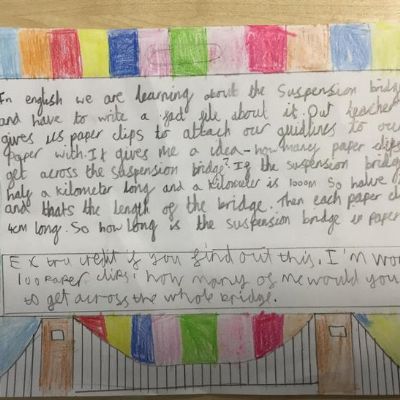 In english we are learning about the suspension bridge
and have to write a fact file about it. Out teacher
gives us paper clips to attach our guidlines to our
paper with. It gives me a idea - how many paper clips
get across the suspension bridge? If the suspension bridge
half a kilometer long and a kilometer is 1000m so halve
and thats the length of the bridge. Then each paper cl
4cm long. So how long is the suspension bridge in paper
Extra credit if you find out this, I'm wor
100 paper clips, how many of me would you
to get across the whole bridge.